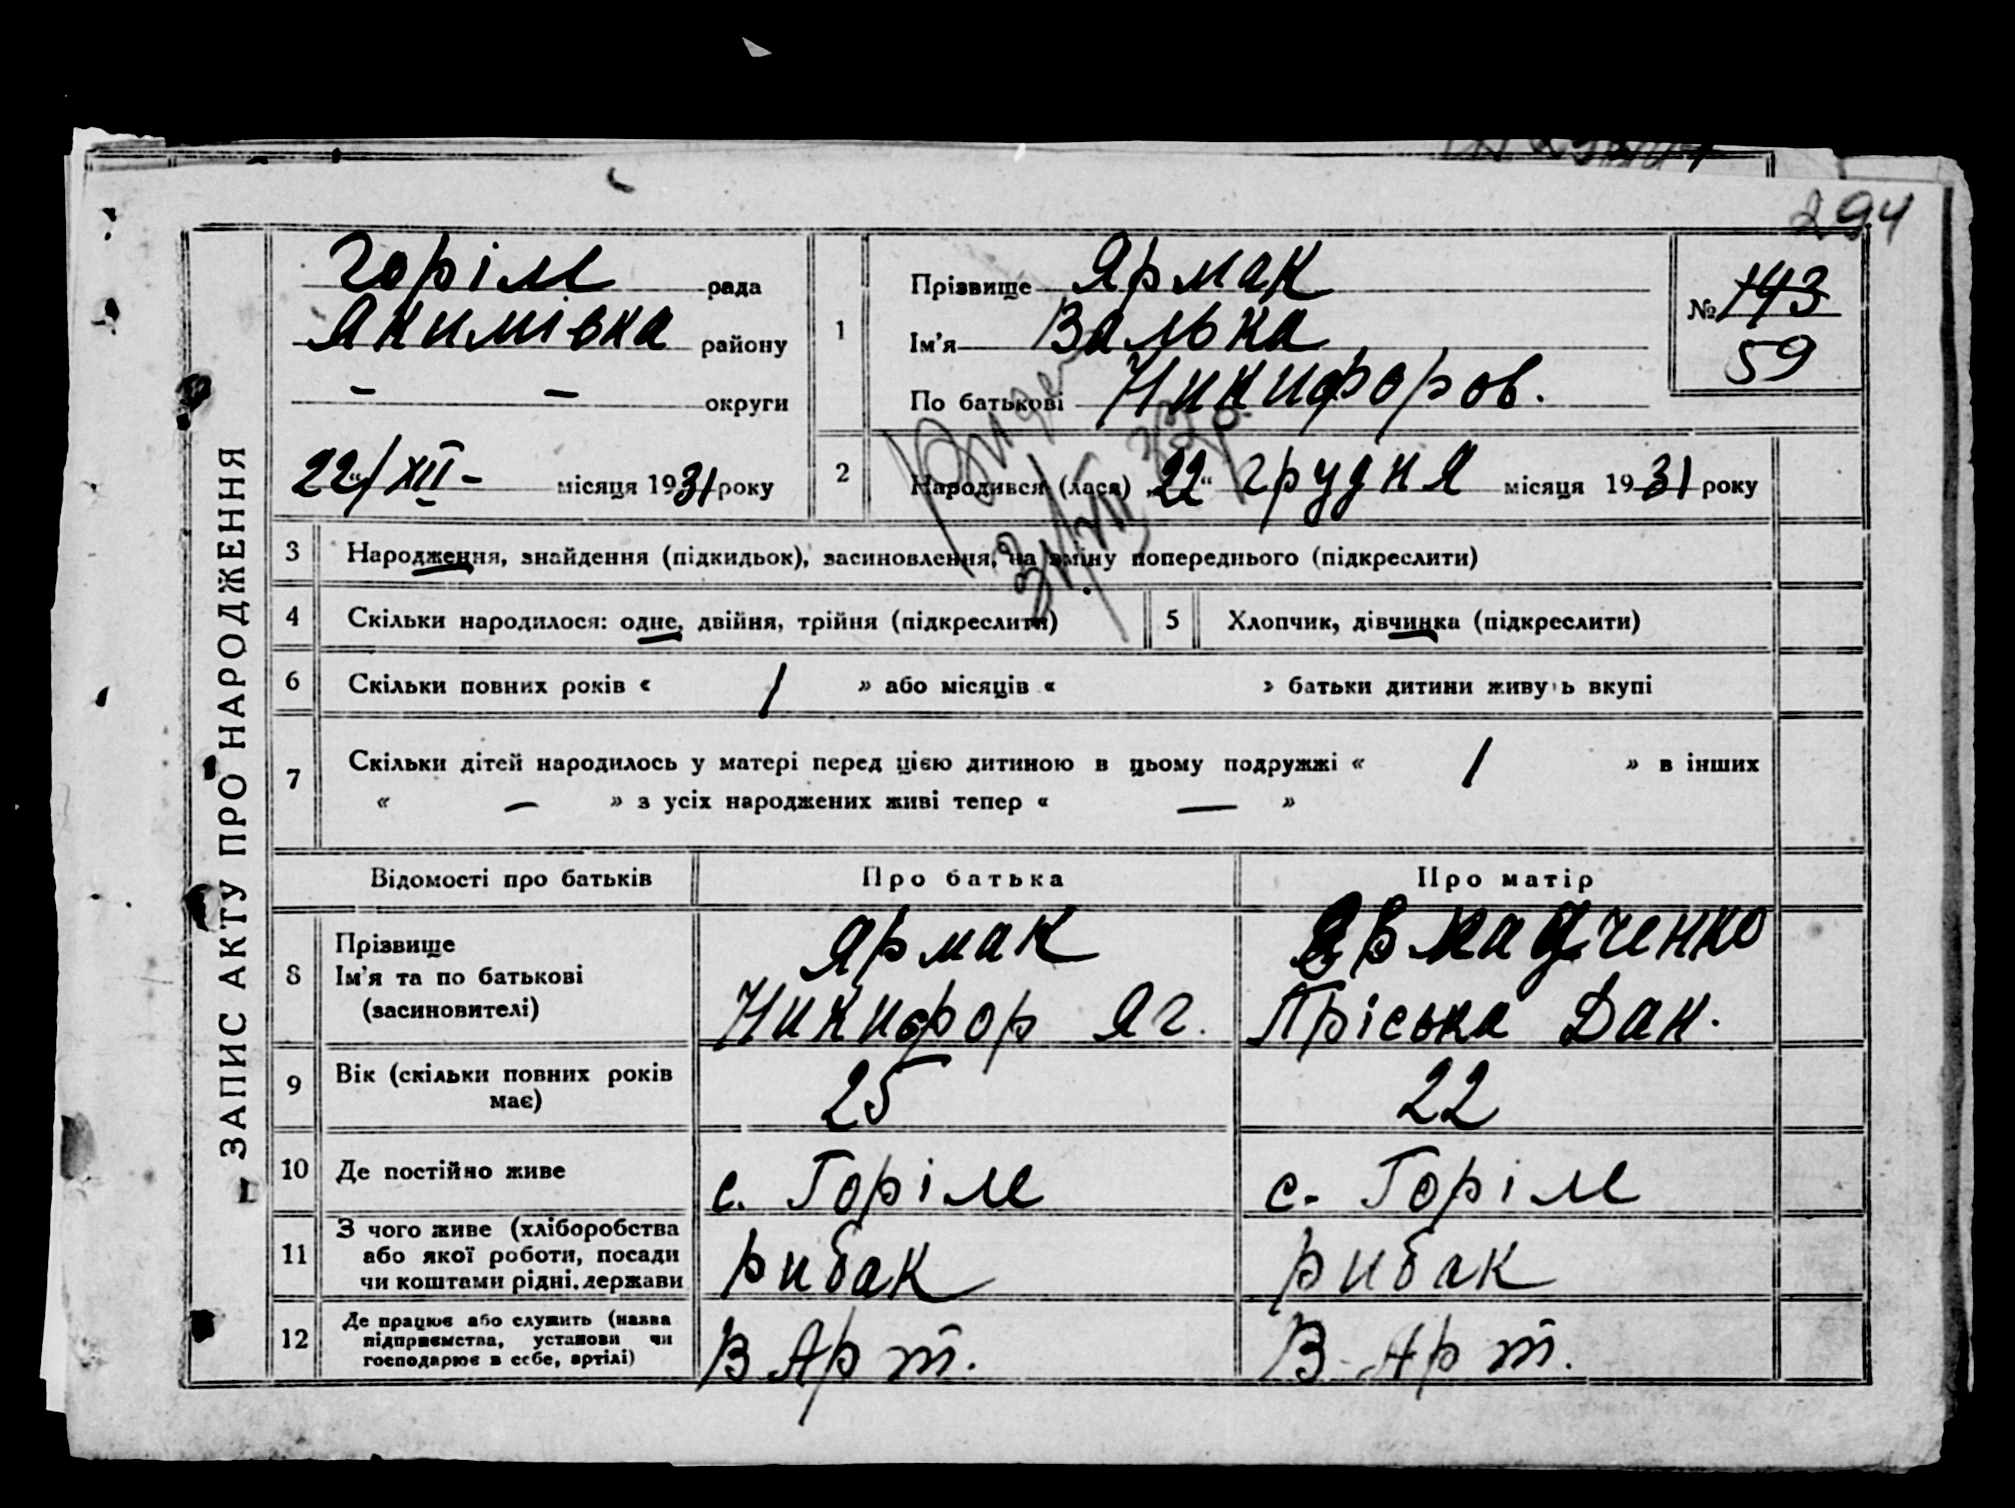 294
ЗАПИС АКТУ ПРО НАРОДЖЕННЯ
Горіле рада
Якимівка району
– – округи
22/XII – місяця 1931 року
1
Прізвище Ярмак
Ім'я Валька
По батькові Никифоров.
№ 143
59
2
Народився (лася) „22“ грудня місяця 1931 року
31/VII 32р
3 Народження, знайдення (підкидьок), засиновлення, на зміну попереднього (підкреслити)
4 Скільки народилося: одне, двійня, трійня (підкреслити)
5 Хлопчик, дівчинка (підкреслити)
6 Скільки повних років « 1 » або місяців « » батьки дитини живуть вкупі
7 Скільки дітей народилось у матері перед цією дитиною в цьому подружжі « 1 » в інших
« — » з усіх народжених живі тепер « — »
Відомості про батьків
Про батька
Про матір
8
Прізвище
Ім'я та по батькові
(засиновителі)
Ярмак
Никифор Яг.
Пріська Дан.
9
Вік (скільки повних років
має)
25
22
10 Де постійно живе
с. Горіле
с. Горіле
11
З чого живе (хліборобства
або якої роботи, посади
чи коштами рідні, держави
рибак
рибак
12
Де працює або служить (назва
підприємства, установи чи
господарює в себе, артілі)
В Арт.
В Арт.